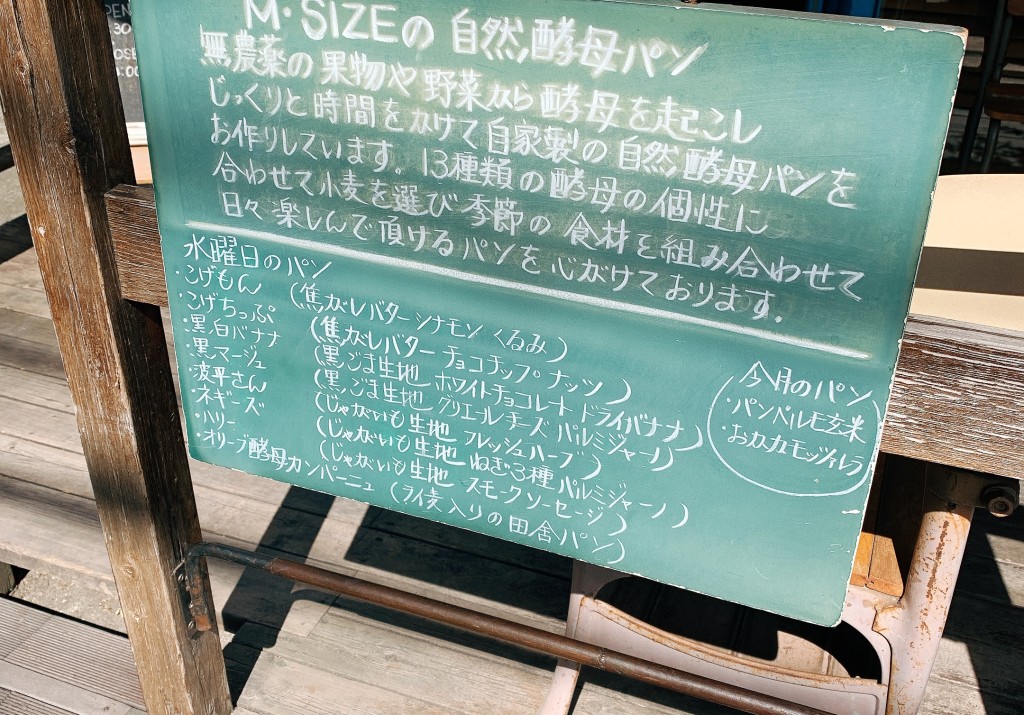 M・SIZEの 自然酵母パン
無農薬の果物や野菜から酵母を起こし
じっくりと時間をかけて自家製の自然酵母パンを
お作りしています。13種類の酵母の個性に
合わせて小麦を選び季節の食材を組み合わせて
日々楽しんで頂けるパンを心がけております.
水曜日のパン
・こげもん (焦がしバターシナモンくるみ)
・こげちっぷ (焦がしバターチョコチップナッツ)
・黒白バナナ (黒ごま生地ホワイトチョコレートドライバナナ)
・黒マージュ (黒ごま生地グリエールチーズパルミジャーノ)
・波平さん (じゃがいも生地フレッシュハーブ)
・ネギーズ (じゃがいも生地ねぎ3種パルミジャーノ)
・ハリー (じゃがいも生地スモークソーセージ)
・オリーブ酵母カンパーニュ (ライ麦入りの田舎パン)
今月のパン
・パンペルモ玄米
・おかカモッツィレラ